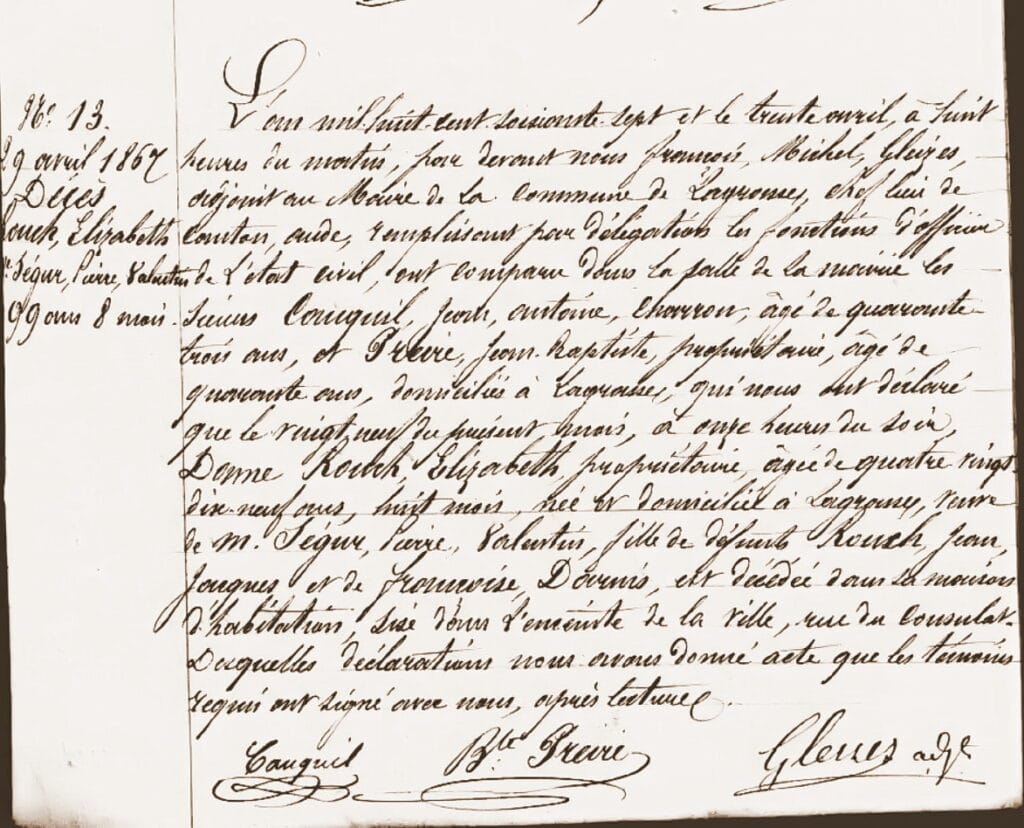 N.° 13.
29 avril 1867
Décès
Rouch, Elizabeth
Ve Ségur, Pierre, Valentin
99 ans 8 mois.
L'an mil huit cent soixante sept et le trente avril, à huit
heures du matin, par devant nous françois, Michel, Gleizes,
adjoint au Maire de La Commune de Lagrasse, chef lieu de
Canton, aude, remplissant par délégation les fonctions d'officier
de L'état civil, ont comparu dans la salle de la mairie les
Sieurs Cauquil, Jean, antoine, charron, âgé de quarante-
trois ans, et Preire, Jean-Baptiste, propriétaire, âgé de
quarante ans, domiciliés à Lagrasse, qui nous ont déclaré
que le vingt neuf du présent mois, à onze heures du soir,
Dame Rouch, Elizabeth, propriétaire, âgée de quatre vingt-
dix-neuf ans, huit mois, née et domiciliée à Lagrasse, veuve
de M. Ségur, Pierre, Valentin, fille de défunts Rouch, Jean,
Jacques, et de françoise, est décédée dans sa maison
d'habitation, sise dans L'enceinte de la ville, rue du Consulat.
Desquelles déclarations nous avons donné acte que les témoins
requis ont signé avec nous, après lecture.
Cauquil Bte Preire Gleizes adjt